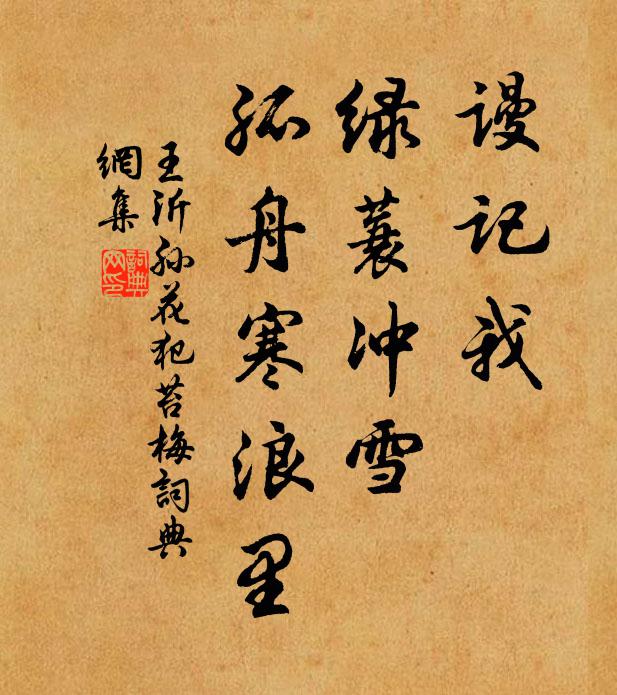 谩记我
绿蓑冲雪
孤舟寒浪里
王沂孙花犯苔梅詞典
網集
詞典
网印